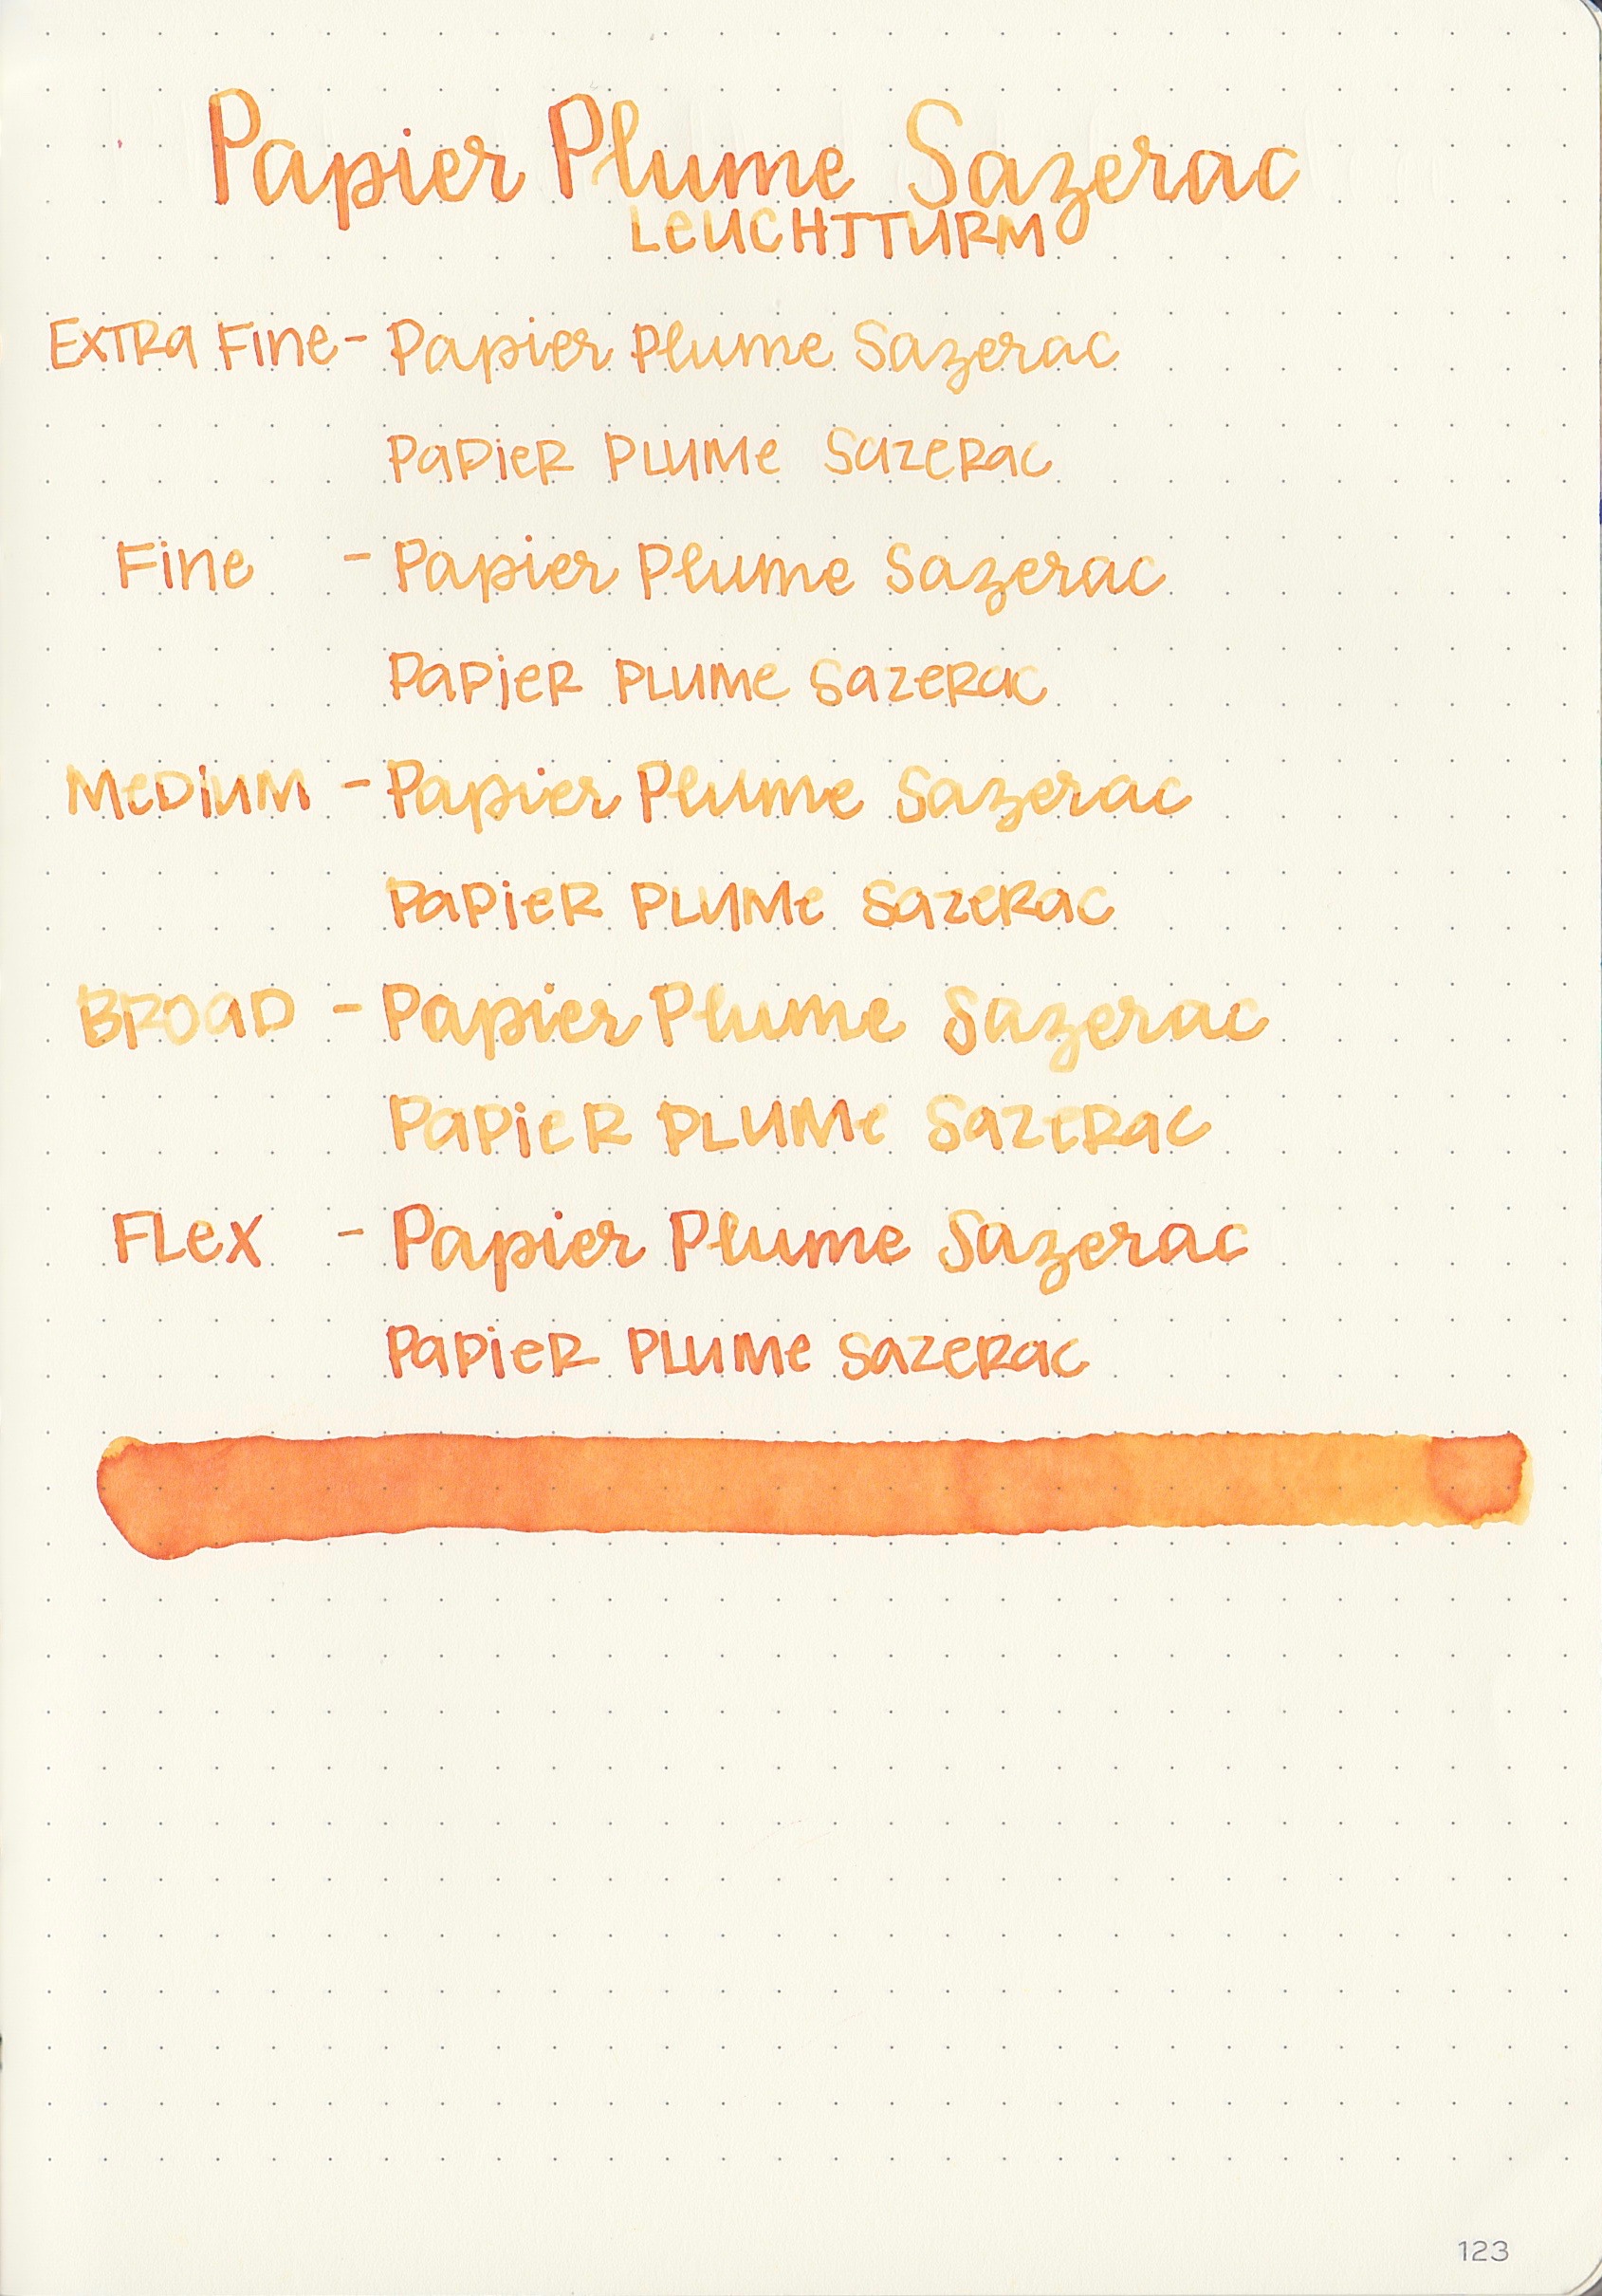 Papier Plume Sazerac
LEUCHTTURM
EXTRA FINE - Papier Plume Sazerac
PAPIER PLUME SAZERAC
FINE - Papier Plume Sazerac
PAPIER PLUME SAZERAC
MEDIUM - Papier Plume Sazerac
PAPIER PLUME SAZERAC
BROAD - Papier Plume Sazerac
PAPIER PLUME SAZERAC
FLEX - Papier Plume Sazerac
PAPIER PLUME SAZERAC
123